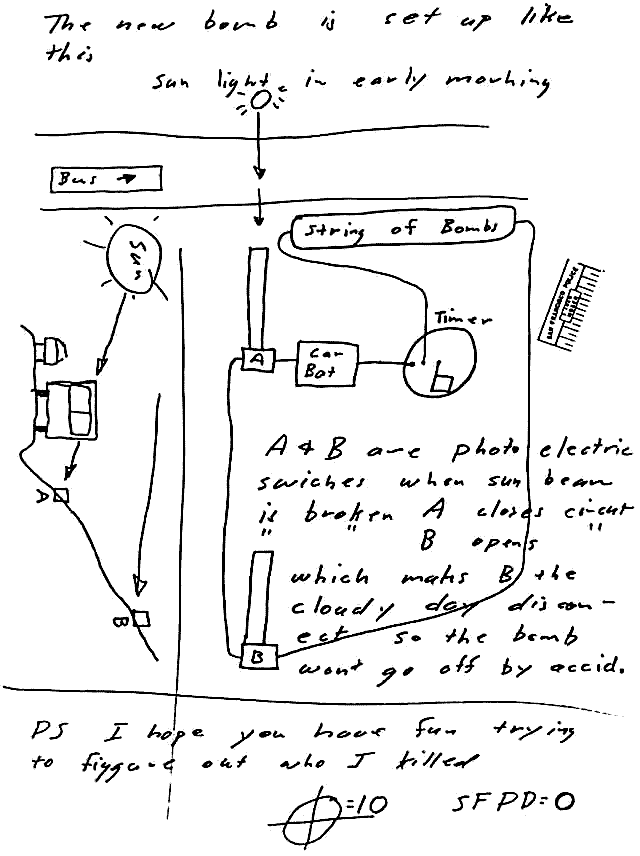 The new bomb is set up like
this
sun light in early morning
Bus
Sun
String of Bombs
Timer
A
Car
Bat
SAN FRANCISCO POLICE
A & B are photo electric
swiches when sun beam
is broken A closes circut
" " " "
B opens
A
B
which maks B the
cloudy day discon-
ect so the bomb
wont go off by accid.
B
PS I hope you have fun trying
to figgure out who I killed
=10 SFPD=0